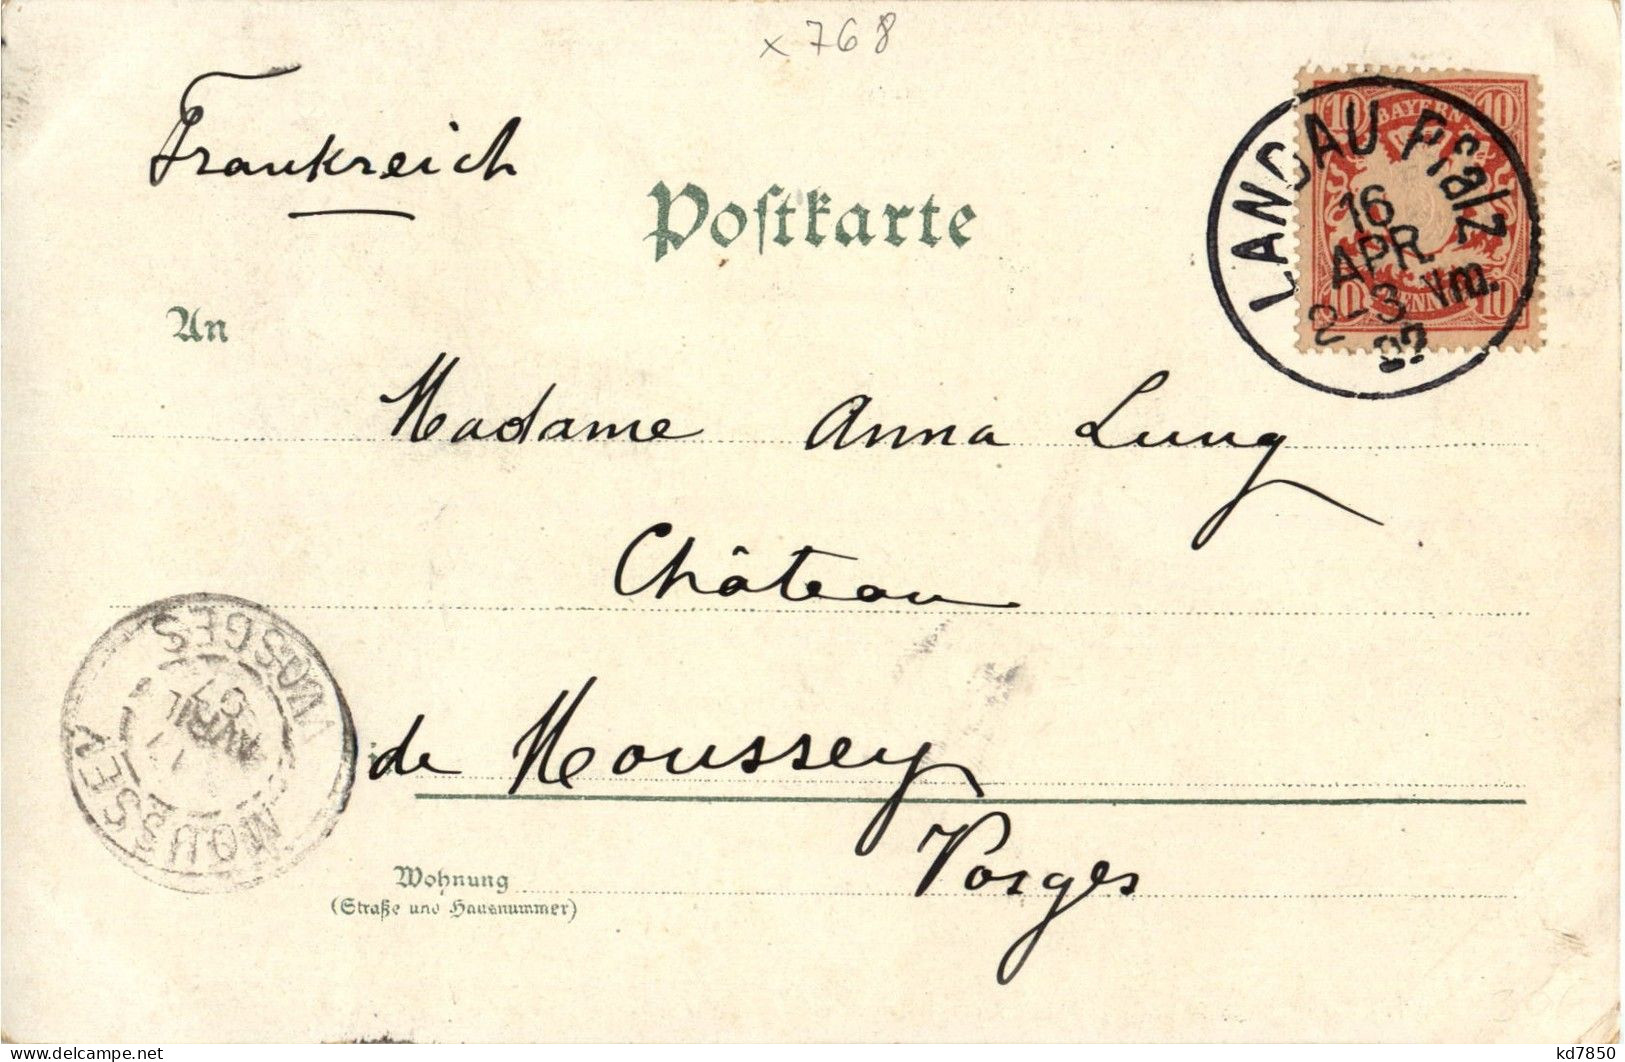 x 768
Frankreich
BAYERN
10 10
10 PFENNIG 10
LANDAU Pfalz
16
APR
2-3 Vm.
Postkarte
An
Madame Anna Lung
Château
de Moussey
Vosges
MOUSSEY
VOSGES
AVRIL
Wohnung
(Straße und Hausnummer)
kd7850